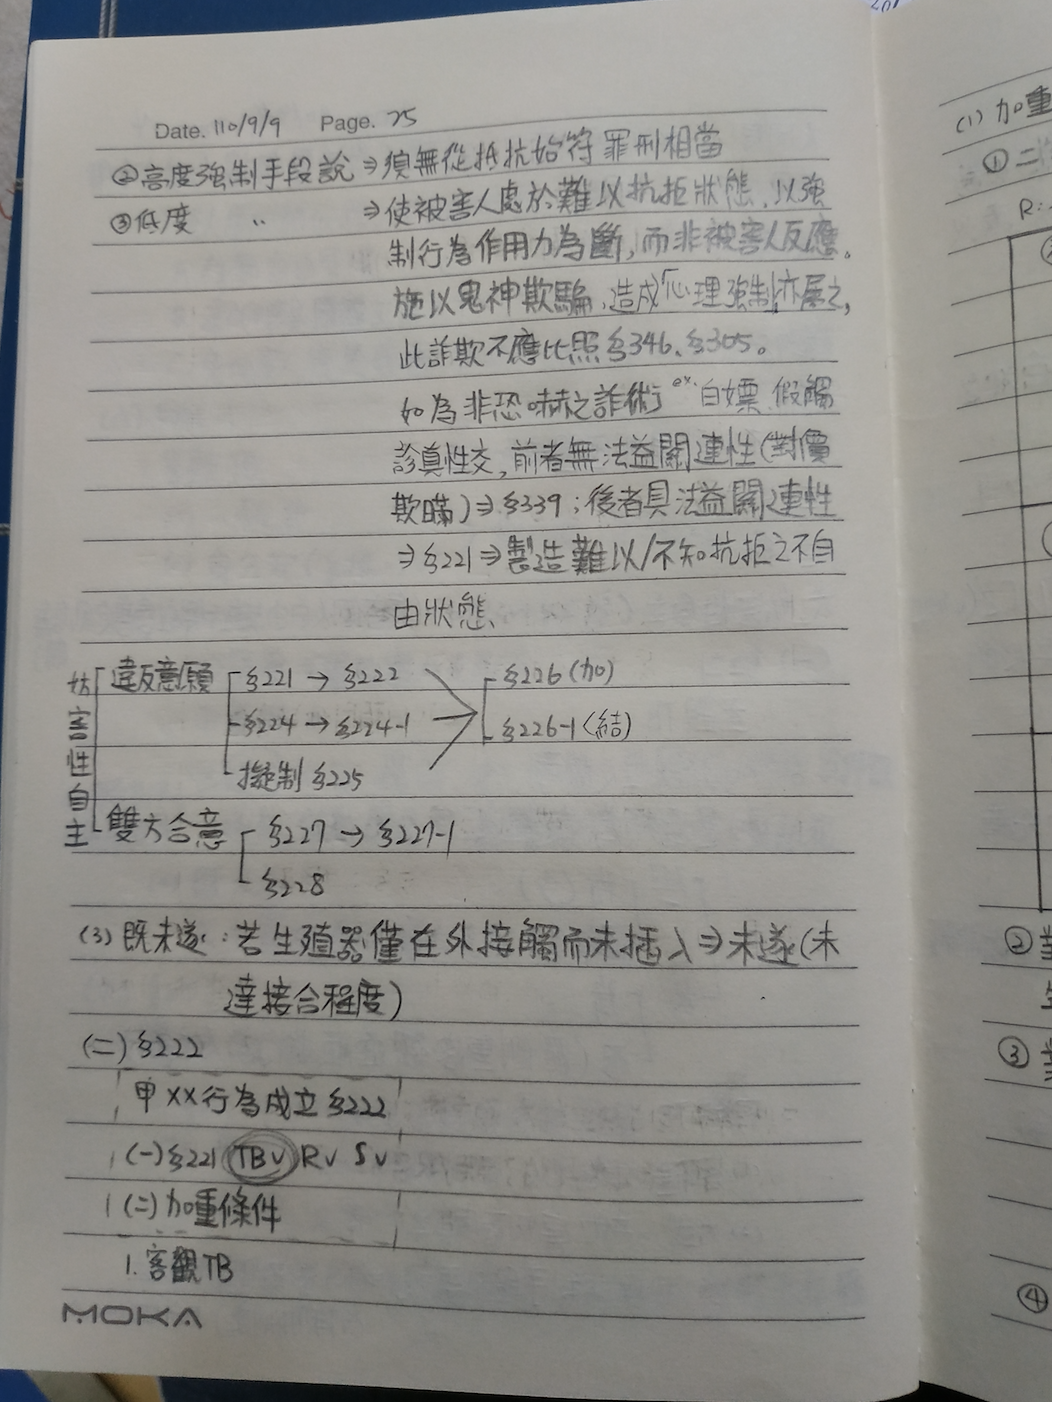 Date. 110/9/9 Page. 25
②高度強制手段說⇒須無從抵抗始符罪刑相當
③低度 〃 ⇒使被害人處於難以抗拒狀態,以強
制行為作用力為斷,而非被害人反應。
施以鬼神欺騙,造成「心理強制」亦屬之,
此詐欺不應比照§346、§305。
如為非恐嚇之詐術 ex.白嫖、假觸
診真性交,前者無法益關連性(對價
欺瞞)⇒§339;後者具法益關連性
⇒§221⇒製造難以/不知抗拒之不自
由狀態
妨害性自主
違反意願 §221→§222 §226(加)
§224→§224-1 §226-1(結)
擬制§225
雙方合意 §227→§227-1
§228
(3)既未遂:若生殖器僅在外接觸而未插入⇒未遂(未
達接合程度)
(二)§222
甲XX行為成立§222
(一)§221 TBv Rv Sv
(二)加重條件
1.客觀TB
MOKA
(1)加重
①二
R:
②
③
④